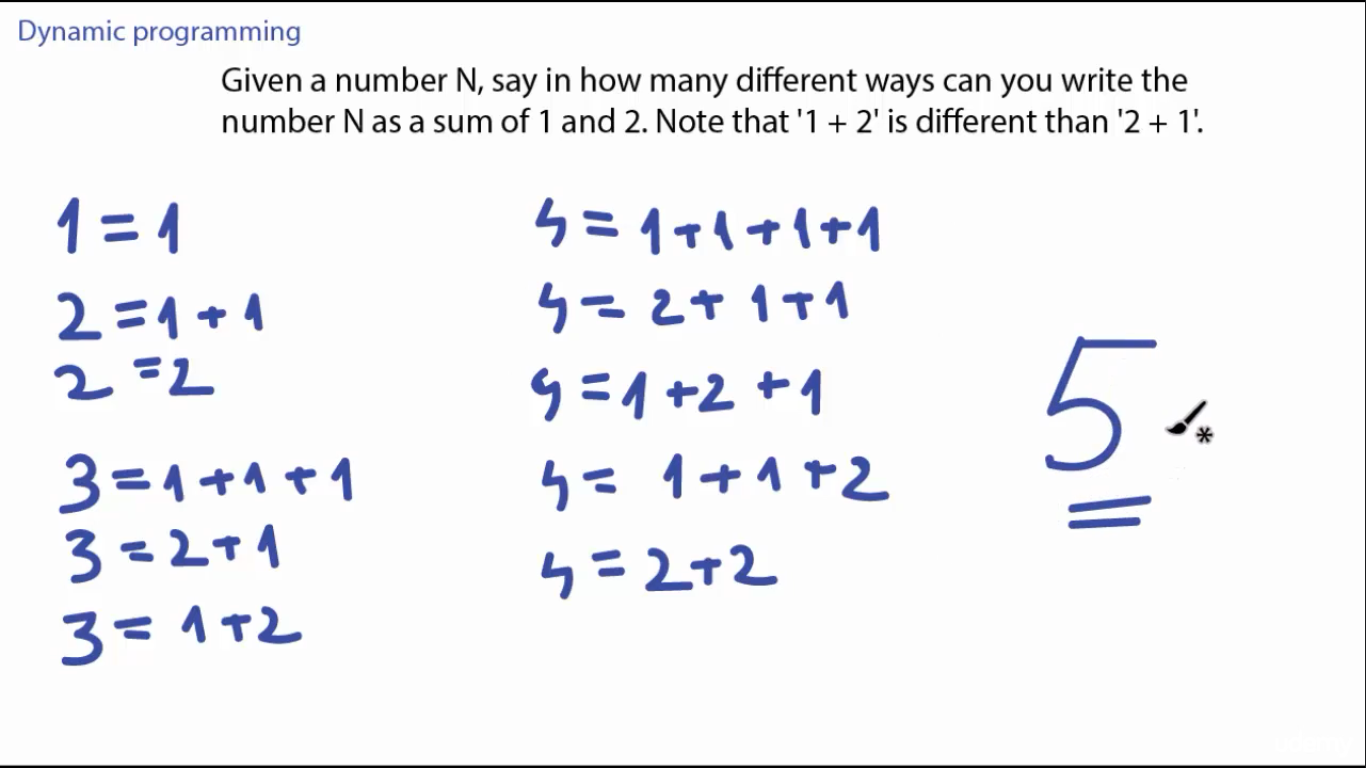 Dynamic programming
Given a number N, say in how many different ways can you write the
number N as a sum of 1 and 2. Note that '1 + 2' is different than '2 + 1'.
1 = 1
2 = 1 + 1
2 = 2
3 = 1 + 1 + 1
3 = 2 + 1
3 = 1 + 2
4 = 1 + 1 + 1 + 1
4 = 2 + 1 + 1
4 = 1 + 2 + 1
4 = 1 + 1 + 2
4 = 2 + 2
5
*
Udemy